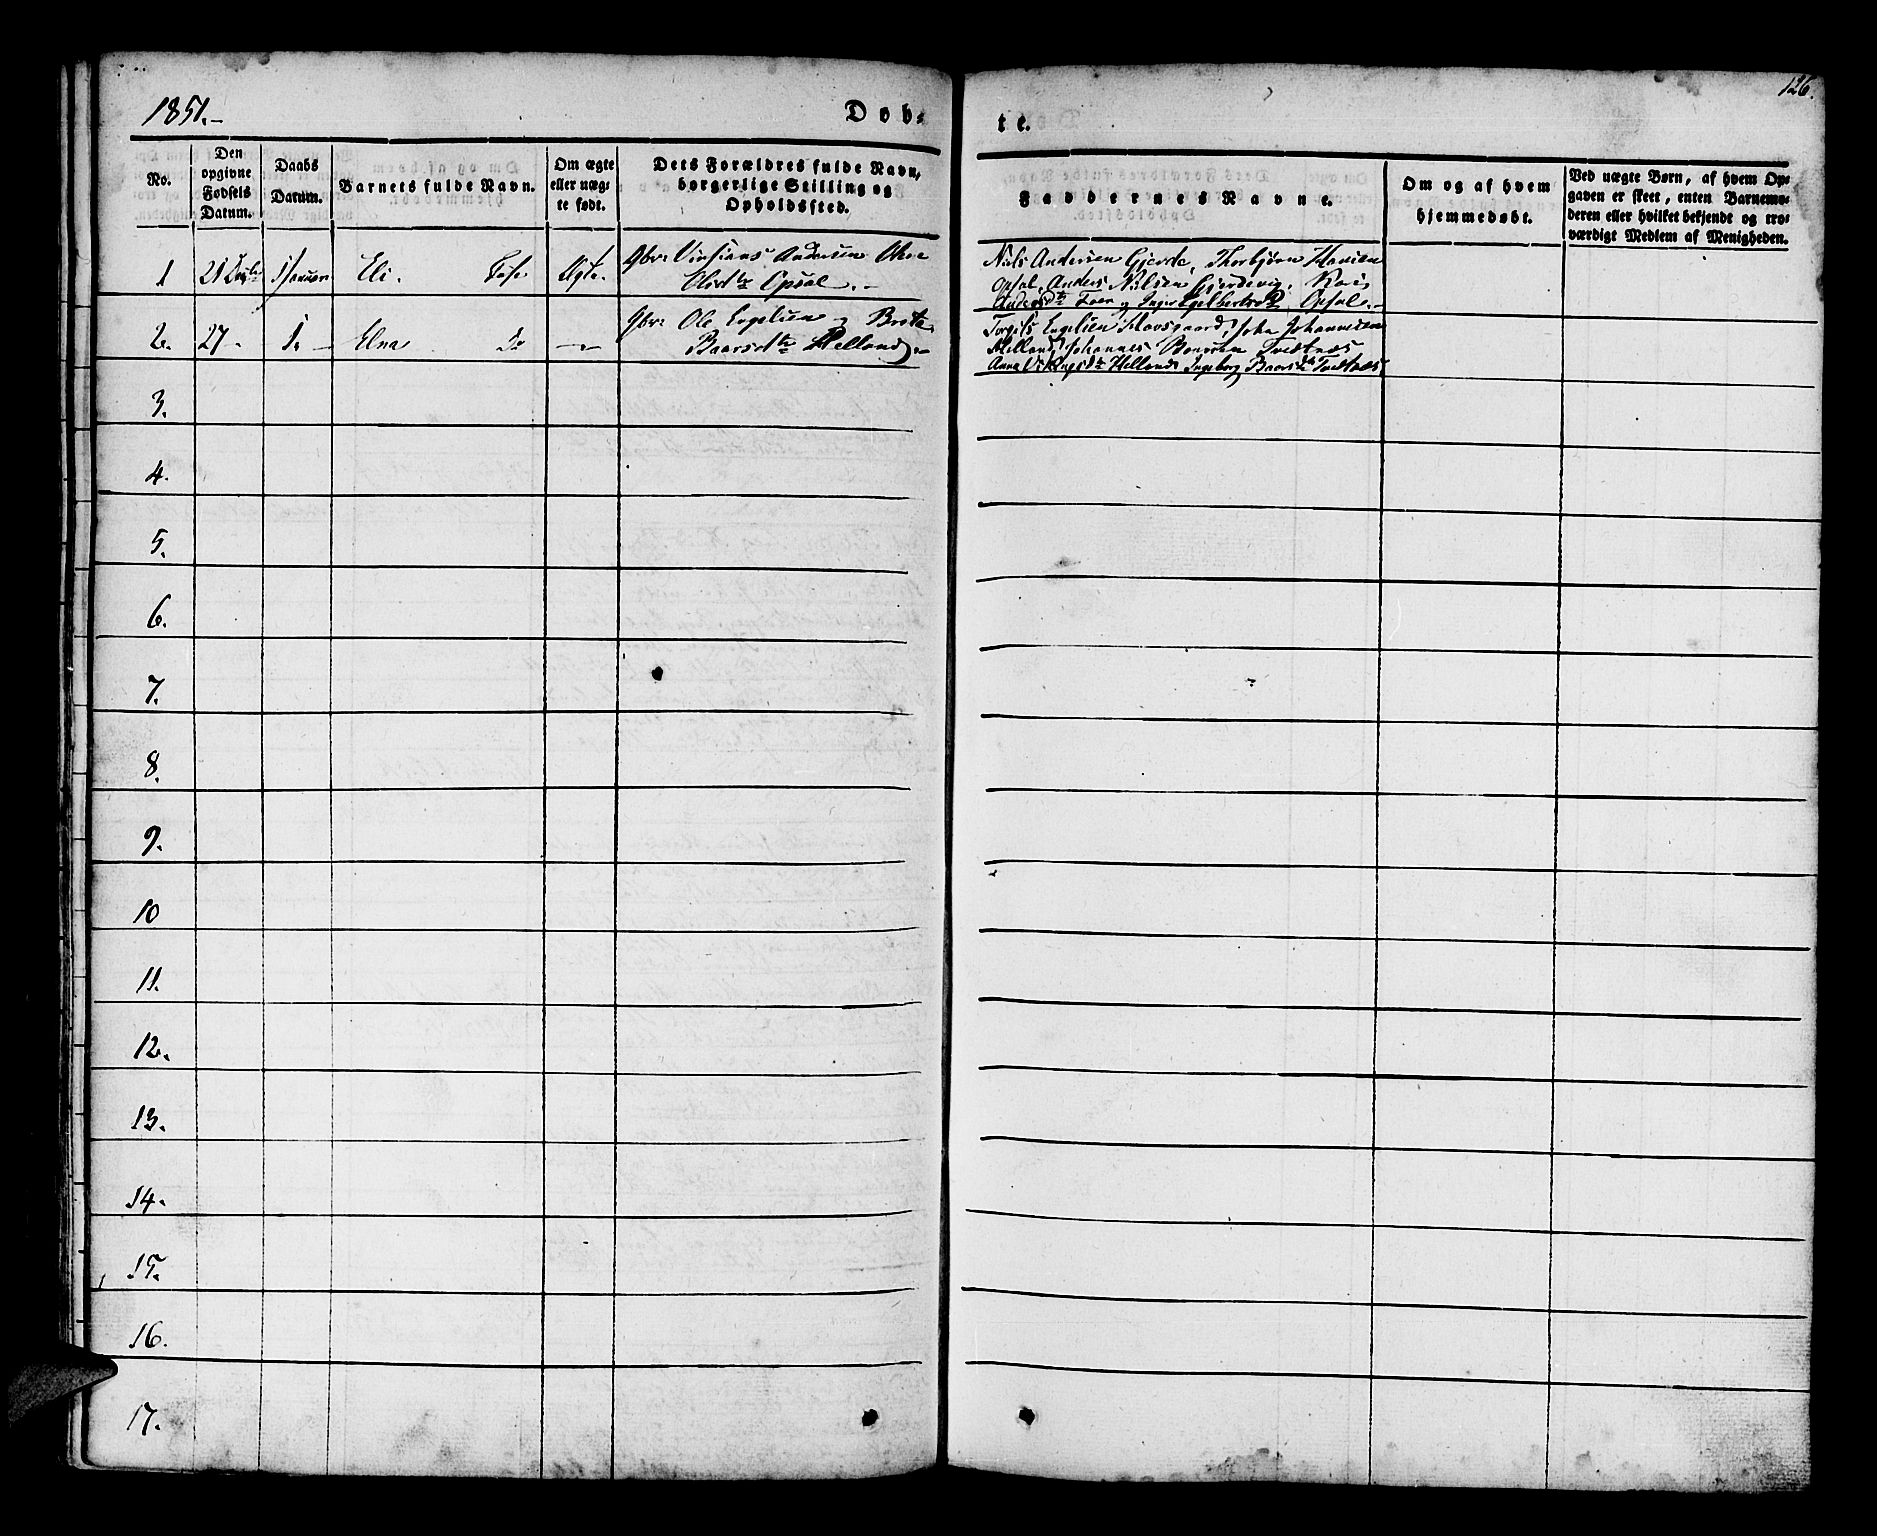 126.
1851.-
Døb-
te.
No.
Den opgivne Fødsels Datum.
Daabs Datum.
Barnets fulde Navn.
Om ægte eller uæg-te født.
Dets Forældres fulde Navn, borgerlige Stilling og Opholdssted.
Faddernes Navne.
Om og af hvem hjemmedøbt.
Ved uægte Børn, af hvem Op-
gaven er skeet, enten Barnemo-
deren eller hvilket bekjendt og tro-
værdigt Medlem af Menigheden.
1 21 1 Januar Eli. Ægte. Gbr: Andersen
Opsal.-
Niels Andersen Gjerde, Thorbjørn Hansen
Opsal, Anders Nilsen Gjerdevig, Kari
Opsal.-
2. 27- Elna Do Gbr: Ole Engelsen og Brita
Baarsdtr Helland.-
Torgils Engelsen Johannesen
Helland, Johannes Baarsen Tvedtnæs
Anna Helland Ingeborg Baarsdtr Tvedtnæs
3.
4.
5.
6.
7.
8.
9.
10
11.
12.
13.
14.
15.
16.
17.